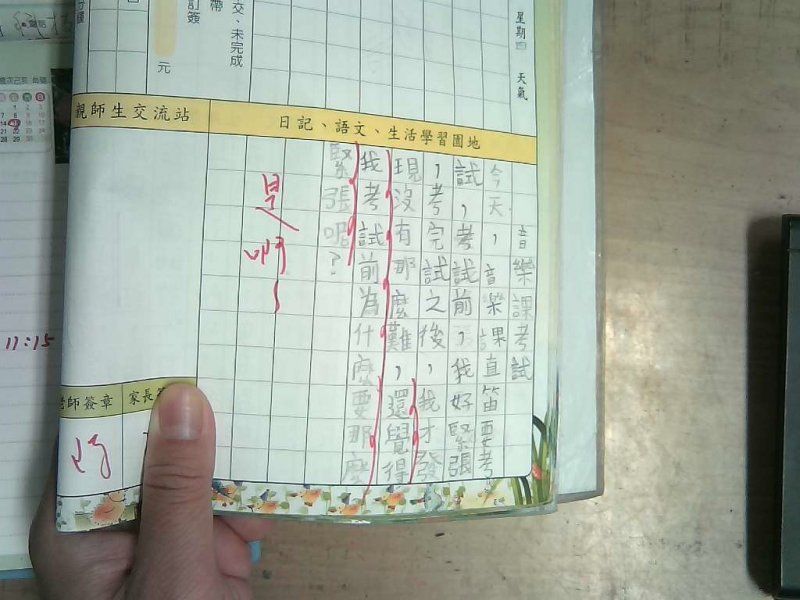 星期四 天氣
交、未完成
帶
訂簽
元
親師生交流站
日記、語文、生活學習園地
音樂課考試
今天，音樂課直笛要考
試，考試前，我好緊張
，考完試之後，我才發
現沒有那麼難，還覺得
我考試前為什麼要那麼
緊張呢？
是啊~
師簽章
家長
11:15